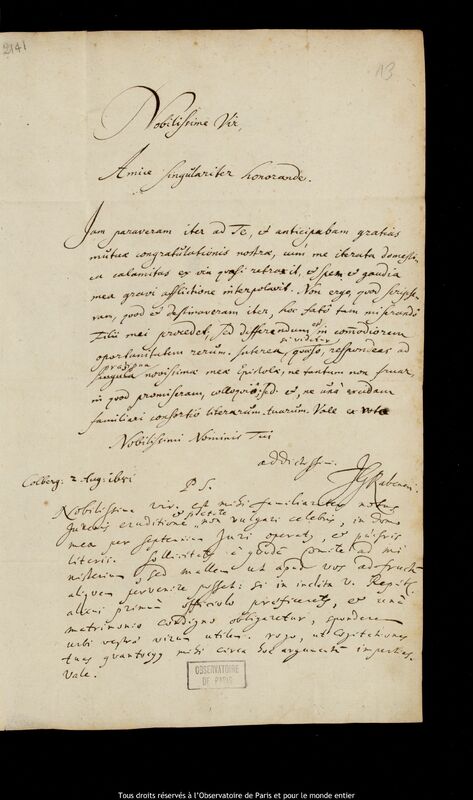 2141
113
Nobilissime Vir,
Amice singulariter honorande.
Jam paraveram iter ad Te, et anticipabam gratias
mutuæ congratulationis nostræ, cum me iterata domesti-
ca calamitas ex via quasi retraxit, et spem et gaudia
mea gravi afflictione interpolavit. Non ergo, quod scripse-
ram, quod et destinaveram iter, hoc fato tam miserandi
Filii mei procedet, sed differendum est in commodiorem
oportunitatem rerum. Interea, si videtur, quæso, respondeas ad
singula novissimæ meæ Epistolæ, ne tantum non fruar,
in quod promiseram, colloquio; sed et, ne una excidam
familiari consortio literarum Tuarum. Vale ex voto
Nobilissimi Nominis Tui
addictissim.
Colberg. 2 Aug. 1651
P. S.
Nobilissime vir, est mihi familiariter notus
Juvenis eruditione, et non vulgari celebris, in domo
mea per septenium Juri operatus, et
literis.
et sed mallem ut apud vos ad
aliquem pervenire posset: si in inclita v. Repub.
alicui primum officiolo proficeretur, et una
matrimonio condigno obligaretur, sponderem
urbi vestræ virum utilem. rogo, ut cogitationes
tuas mihi circa hoc argumentum impertias.
Vale.
OBSERVATOIRE
DE PARIS
Tous droits réservés à l'Observatoire de Paris et pour le monde entier